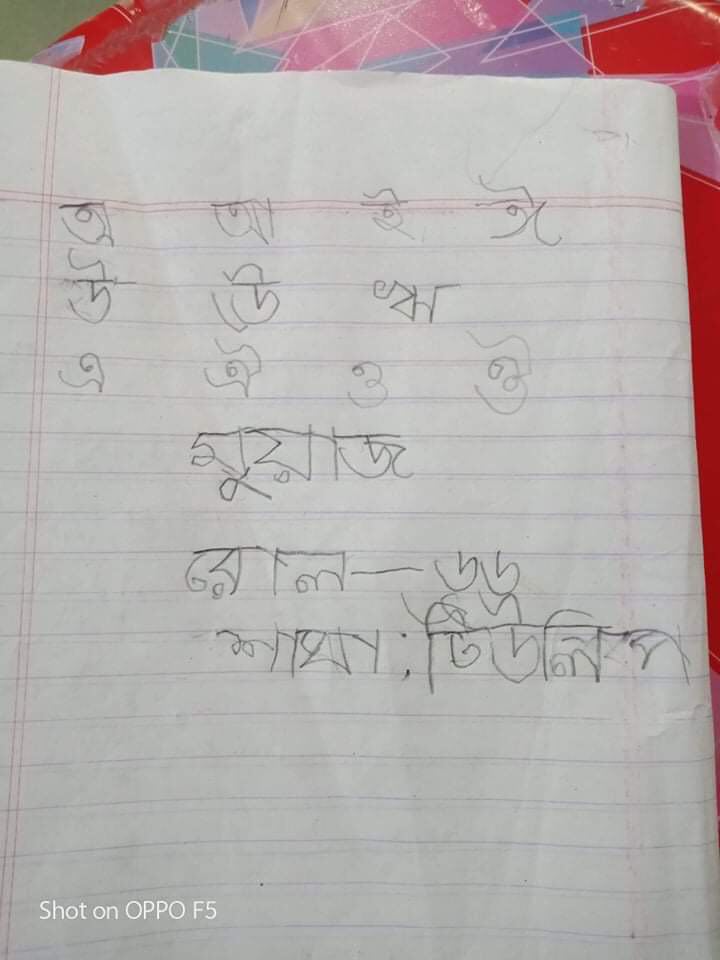 অ আ ই ঈ
উ ঊ ঋ
এ ঐ ও ঔ
মুয়াজ
রোল — ৬৬
শাখা : টিউলিপ
Shot on OPPO F5